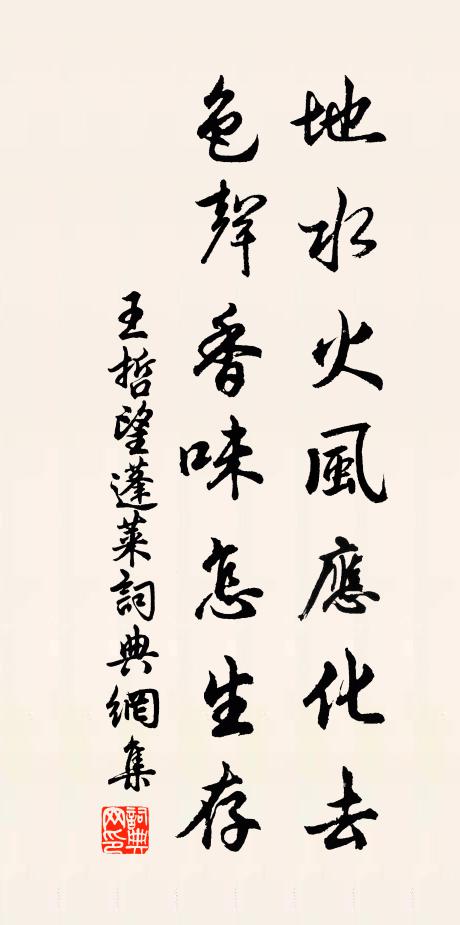 地水火風應化去
色聲香味怎生存
王哲望蓬萊詞典網集
詞典網印